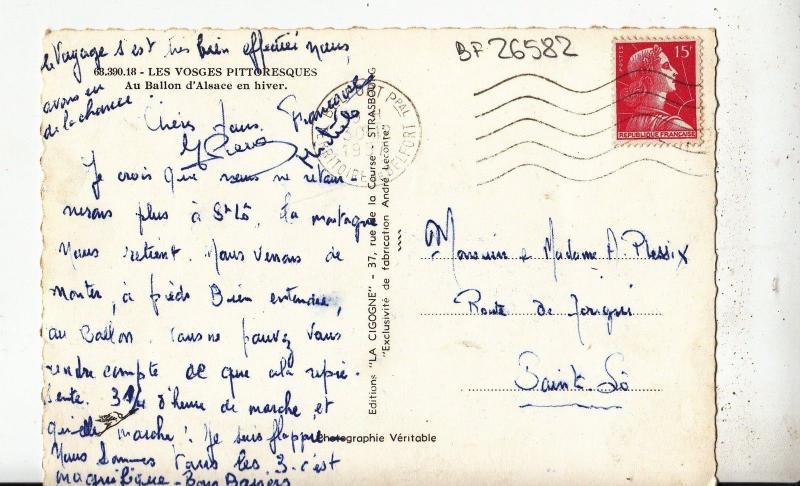 le Voyage s'est très bien effectué nous
avons eu
de la chance !
68.390.18 - LES VOSGES PITTORESQUES
Au Ballon d'Alsace en hiver.
Chers tous. Françoise
Je crois que nous ne retour-
nerons plus à St Lô, la montagne
nous retient. Nous venons de
monter, à pieds Bien entendu,
au Ballon. Vous ne pouvez vous
rendre compte de ce que cela représente
sente. 3/4 d'heure de marche, et
quelle marche ! Je suis
Nous sommes tous les 3. c'est
magnifique - Bons Baisers
Editions "LA CIGOGNE" - 37, rue de la Course - STRASBOURG
"Exclusivité de fabrication André Leconte"
Photographie Véritable
BF 26582
BELFORT PPAL
TRITOIRE DE BELFORT
POSTES
15F
REPUBLIQUE FRANÇAISE
Monsieur et Madame A. Plessix
Route de
Saint-Lô